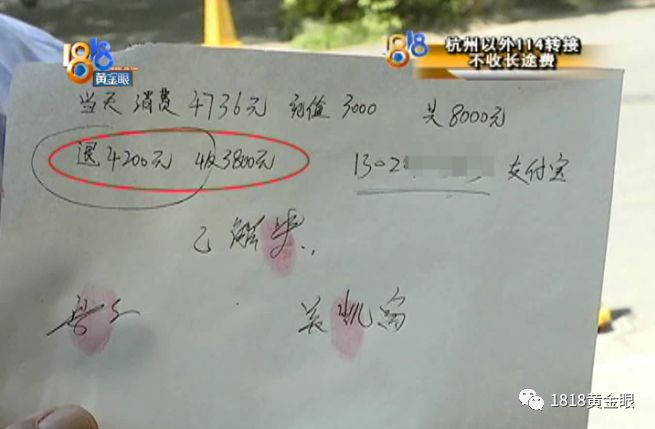 1818
黄金眼
1818 杭州以外114转接
不收长途费
当天 消费 4736元 充值 3000 共 8000元
退 4200元 收 3800元 1302 支付宝
已解决
吴凯
1818黄金眼